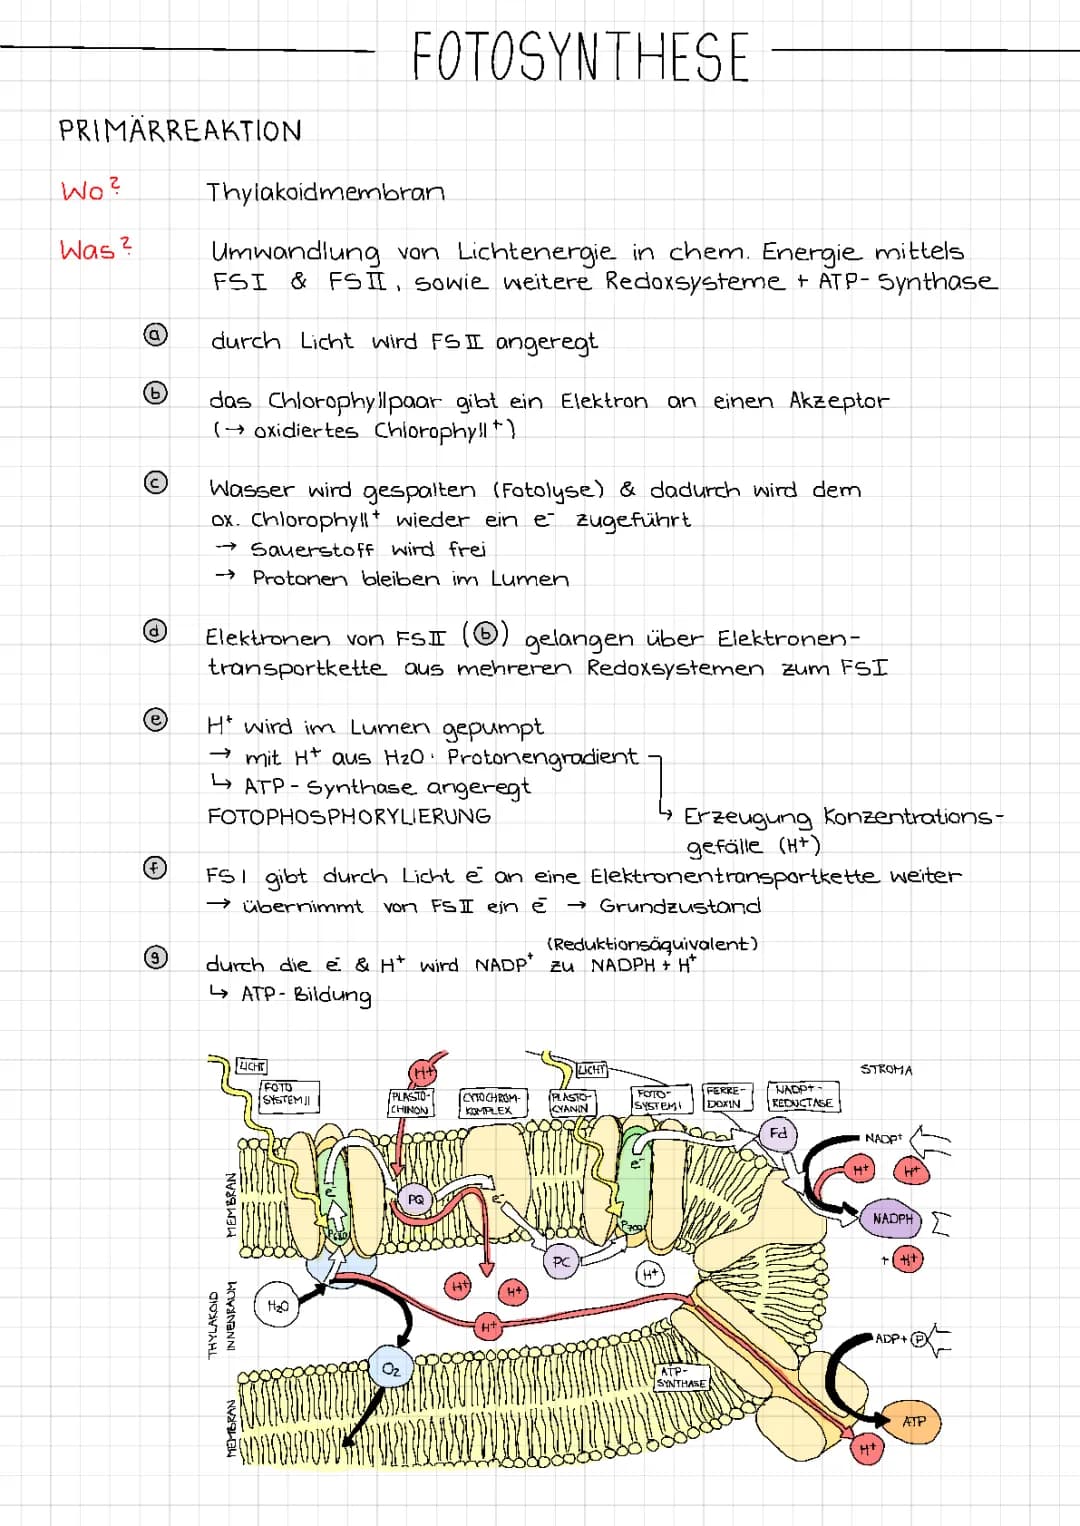 FOTOSYNTHESE
PRIMÄRREAKTION
Wo? Thylakoidmembran
Was? Umwandlung von Lichtenergie in chem. Energie mittels
FSI & FSII, sowie weitere Redoxsysteme + ATP-Synthase
a durch Licht wird FSII angeregt
b das Chlorophyllpaar gibt ein Elektron an einen Akzeptor
(→ oxidiertes Chlorophyll⁺)
c Wasser wird gespalten (Fotolyse) & dadurch wird dem
ox. Chlorophyll⁺ wieder ein e⁻ zugeführt
→ Sauerstoff wird frei
→ Protonen bleiben im Lumen
d Elektronen von FSII (b) gelangen über Elektronen-
transportkette aus mehreren Redoxsystemen zum FSI
e H⁺ wird im Lumen gepumpt
→ mit H⁺ aus H2O: Protonengradient
↳ ATP-Synthase angeregt
FOTOPHOSPHORYLIERUNG
↳ Erzeugung Konzentrations-
gefälle (H⁺)
f FSI gibt durch Licht e⁻ an eine Elektronentransportkette weiter
→ übernimmt von FSII ein e⁻ → Grundzustand
(Reduktionsäquivalent)
g durch die e⁻ & H⁺ wird NADP⁺ zu NADPH + H⁺
↳ ATP-Bildung
LICHT
FOTO
SYSTEM II
H+
PLASTO-
CHINON
CYTOCHROM-
KOMPLEX
LICHT
PLASTO-
CYANIN
FOTO-
SYSTEM I
FERRE-
DOXIN
NADP+-
REDUCTASE
STROMA
MEMBRAN
e⁻
P680
PQ
e⁻
PC
e⁻
P700
Fd
NADP+
H+
H+
NADPH
+ H+
THYLAKOID
INNENRAUM
H2O
H+
H+
H+
H+
O2
ATP-
SYNTHASE
ADP + P
ATP
H+
MEMBRAN